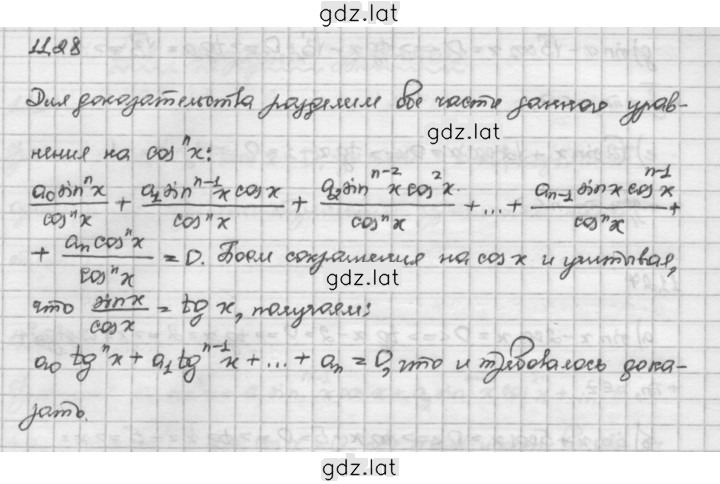 gdz.lat
11.28
Для доказательства разделим обе части данного урав-
gdz.lat
нения на cosⁿx:
a₀sinⁿx/cosⁿx + a₁sinⁿ⁻¹x cosx/cosⁿx + a₂sinⁿ⁻²x cos²x/cosⁿx + ... + aₙ₋₁sinx cosⁿ⁻¹x/cosⁿx +
+ aₙcosⁿx/cosⁿx = 0. После сокращения на cosx и учитывая,
gdz.lat
что sinx/cosx = tg x, получаем:
a₀tgⁿx + a₁tgⁿ⁻¹x + ... + aₙ = 0, что и требовалось дока-
зать.
gdz.lat